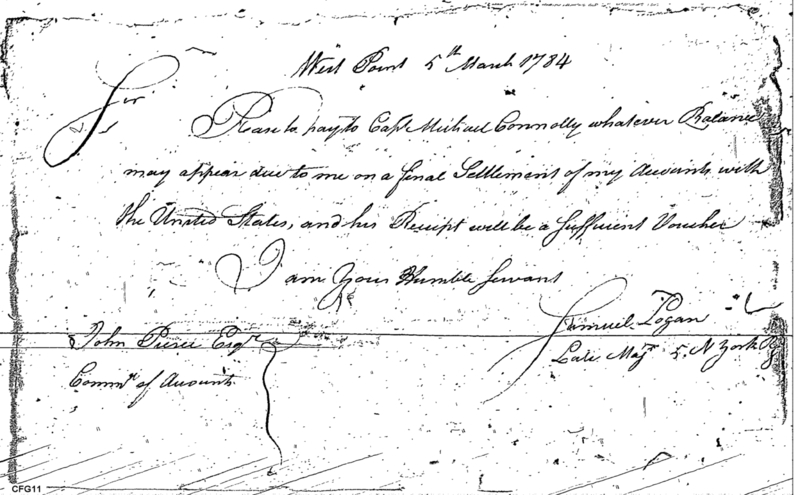 West Point 5th March 1784
Sir
Please to pay to Capt Michael Connolly whatever Balance
may appear due to me on a final Settlement of my Accounts with
the United States, and his Receipt will be a Sufficient Voucher
I am Your Humble Servant
Samuel Logan
Late Majr 5. N York Rg
John Pierce Esqr
Commr of Accounts
CFG11